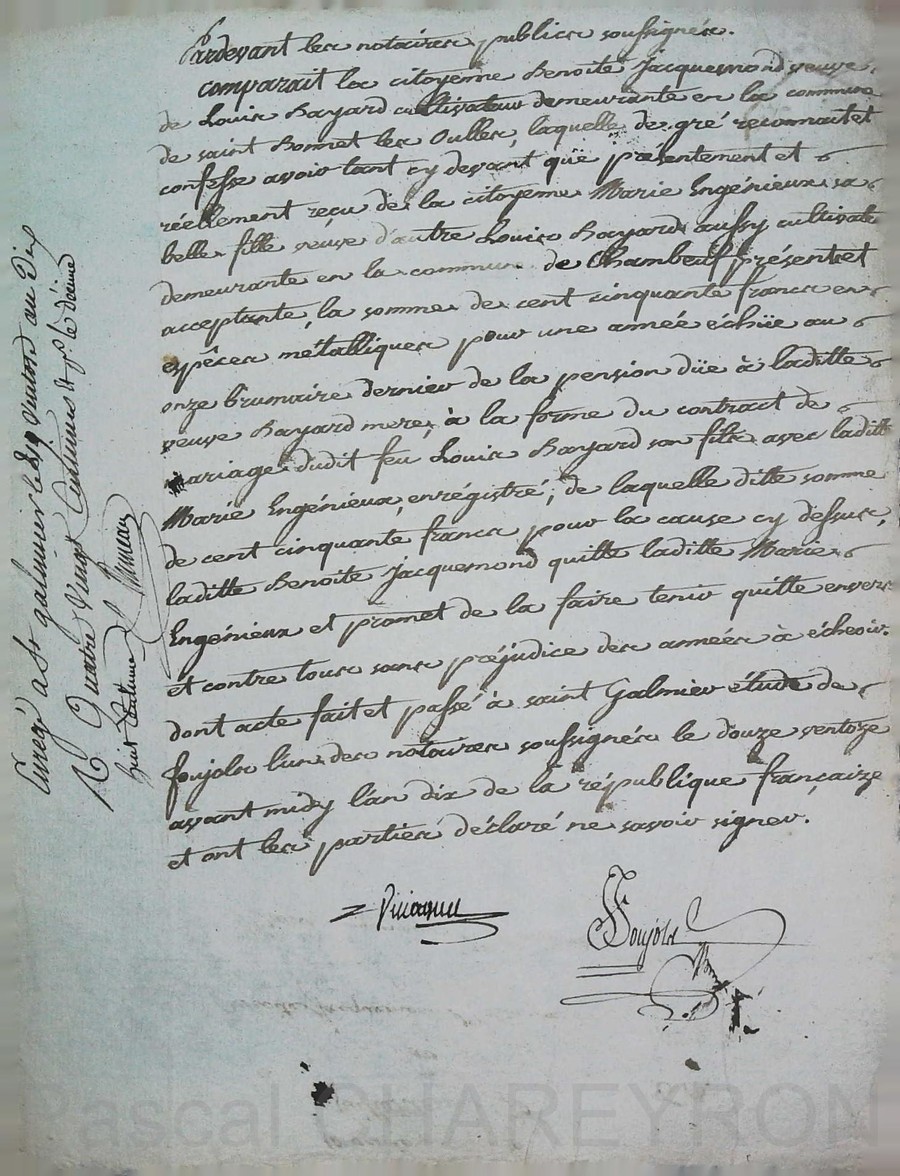 Pardevant les notaires publics soussignés.
comparait la citoyenne Benoite Jacquemond veuve
de Louis Bayard cultivateur demeurante en la commune
de saint Bonnet les Oulles, laquelle de gré reconnait et
confesse avoir tant cy devant que présentement et
réellement reçu de la citoyenne Marie Engénieux sa
belle fille veuve d'autre Louis Bayard aussy cultivate
demeurante en la commune de Chambeuf présente et
acceptante, la somme de cent cinquante francs en
espèces métalliques pour une année échüe au
onze brumaire dernier de la pension düe à laditte
veuve Bayard mere, à la forme du contract de
mariage dudit feu Louis Bayard son fils avec laditte
Marie Engénieux, enrégistré; de laquelle ditte somme
de cent cinquante francs pour la cause cy dessus,
laditte Benoite Jacquemond quitte laditte Marie
Engénieux et promet de la faire tenir quitte envers
et contre tous sans préjudice des années à écheoir.
dont acte fait et passé à saint Galmier étude de
Joujols l'un des notaires soussignés le douze ventoze
avant midy l'an dix de la république françaize
et ont les parties déclaré ne savoir signer.
Joujols
Enregé a St galmier le 19 ventose an Dix
R. Quatre vingt Centimes et pr. le dixme
huit Centimes
Pascal CHAREYRON